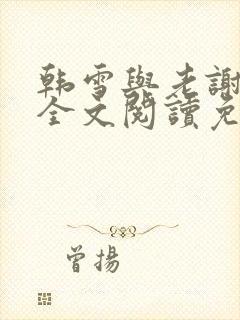 韩雪與老謝
全文閱讀免
曾揚